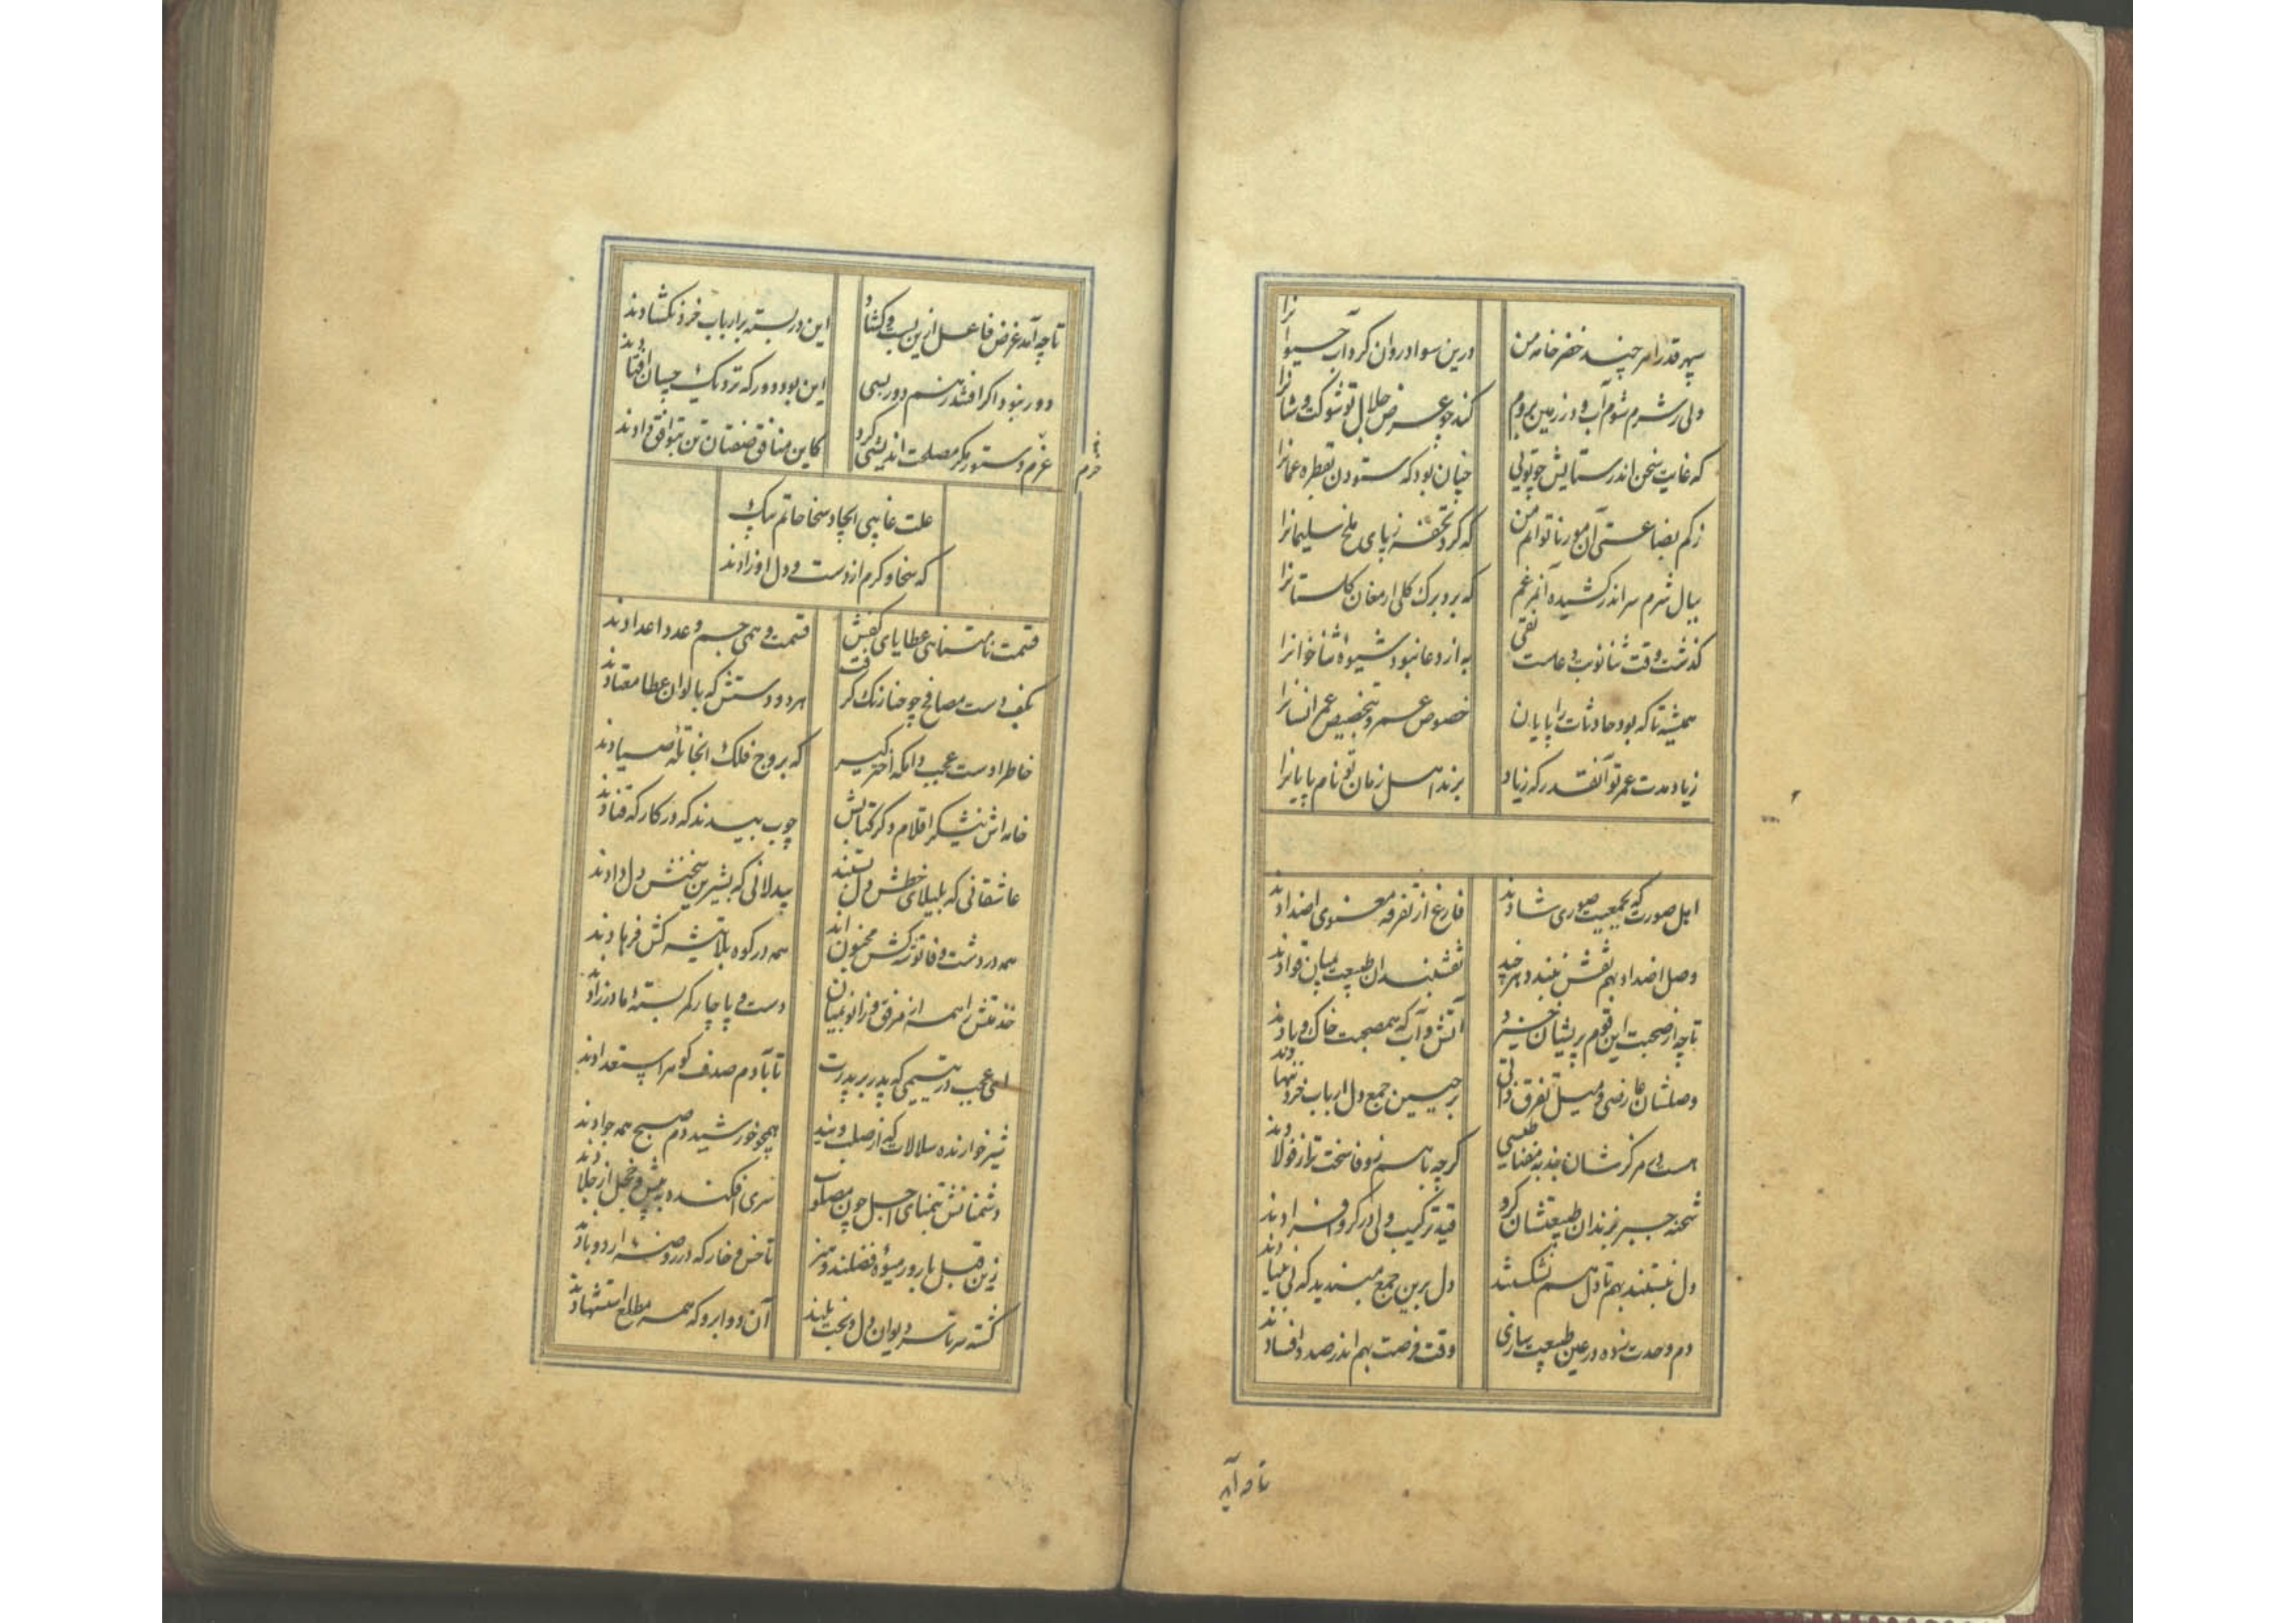 سپهر قدرا هر چند خضر خامه من درین سواد روان کرد آب حیوانرا
ولی ز شرم شوم آب و در زمین بروم کند چو عرض جلال تو شوکت و شانرا
که غایت سخن اندر ستایش چو تویی چنان بود که ستودن بقطره عمانرا
ز کم بضاعتی آن مور ناتوانم من که کرد تحفه ز پای ملخ سلیمانرا
ببال شرم سر اندر کشیده آنمرغم که برد برک کلی ارمغان کلستانرا
کذشت وقت ثنا نوبت دعاست تقی به از دعا نبود شیوه ثناخوانرا
همیشه تا که بود حادثات را پایان خصوص عمر و بتخصیص عمر انسانرا
زیاد مدت عمر تو آنقدر که زیاد برند اهل زمان تو نام پایانرا
اهل صورت که بجمعیت صوری شادند فارغ از تفرقه معنوی اضدادند
وصل اضداد بهم نقش نبندد هر چند نقشبندان طبیعت بمیان
تا چه از صحبت این قوم پریشان خیزد آتش و آب که همصحبت خاک و بادند
وصلشان عارضی و میل تفرق ذاتی جمع دل ارباب خرد ننهادند
هست بی مرکزشان جذبه مقناطیسی کرچه با هم سخت تر از فولادند
شحنه جبر بزندان طبیعتشان کرد قید ترکیب ولی در کرو
دل نبستند بهم تا دل هم نشکستند دل برین جمع مبندید که بی بنیادند
دم وحدت زده در عین طبیعت سازی وقت فرصت بهم اندر صدد افسادند
تا چه آید
تا چه آمد غرض فاعل ازین بست و کشاد این در بسته بر ارباب خرد نکشادند
دور نبود اکر افتند ز هم دور بسی این بود دور که نزدیک چسان افتادند
عزم دستور مکر مصلحت اندیشی کرد کاین منافق صفتان تن بتوافق دادند
حزم
علت غایی ایجاد سخا حاتم بیک
که سخا و کرم از دست و دل او زادند
قسمت نامتناهی عطایای کفش قسمت وهمی جسم و عدد اعدادند
بکف دست مصافح چو حنا رنک کرفت هر دو دستش که بالوان عطا معتادند
خاطر اوست عجب دامکه اخترکیر که بروج فلک آنجا تله صیادند
خامه اش نیشکر اقلام دکر کتابش چوب بیدند که در کارکه قنادند
عاشقانی که بلیلای خطش دل بستند بیدلانی که بشیرین سخنش دل دادند
همه در دشت وفا توشه کش مجنون اند همه در کوه بلا تیشه کش فرهادند
خدمتش را همه از فرق و ز انو بمیان دست و پا چار کمر بسته مادرزادند
عجب در یتیمی که پدر بر پدرت تا بآدم صدف کوهر استعدادند
شیرخوارنده سلالات که از صلب ویند همچو خورشید دم صبح همه جوادند
دشمنانش بتمنای اجل چون مصلوب سری افکنده به پیش و خجل از جلادند
زین قبل بارور میوه فضلند و هنر تا خس و خار که در روضه اردوبادند
کشته سر تا سر دیوان دل و بخت بلند آن دو ابرو که همه مطلع استشهادند